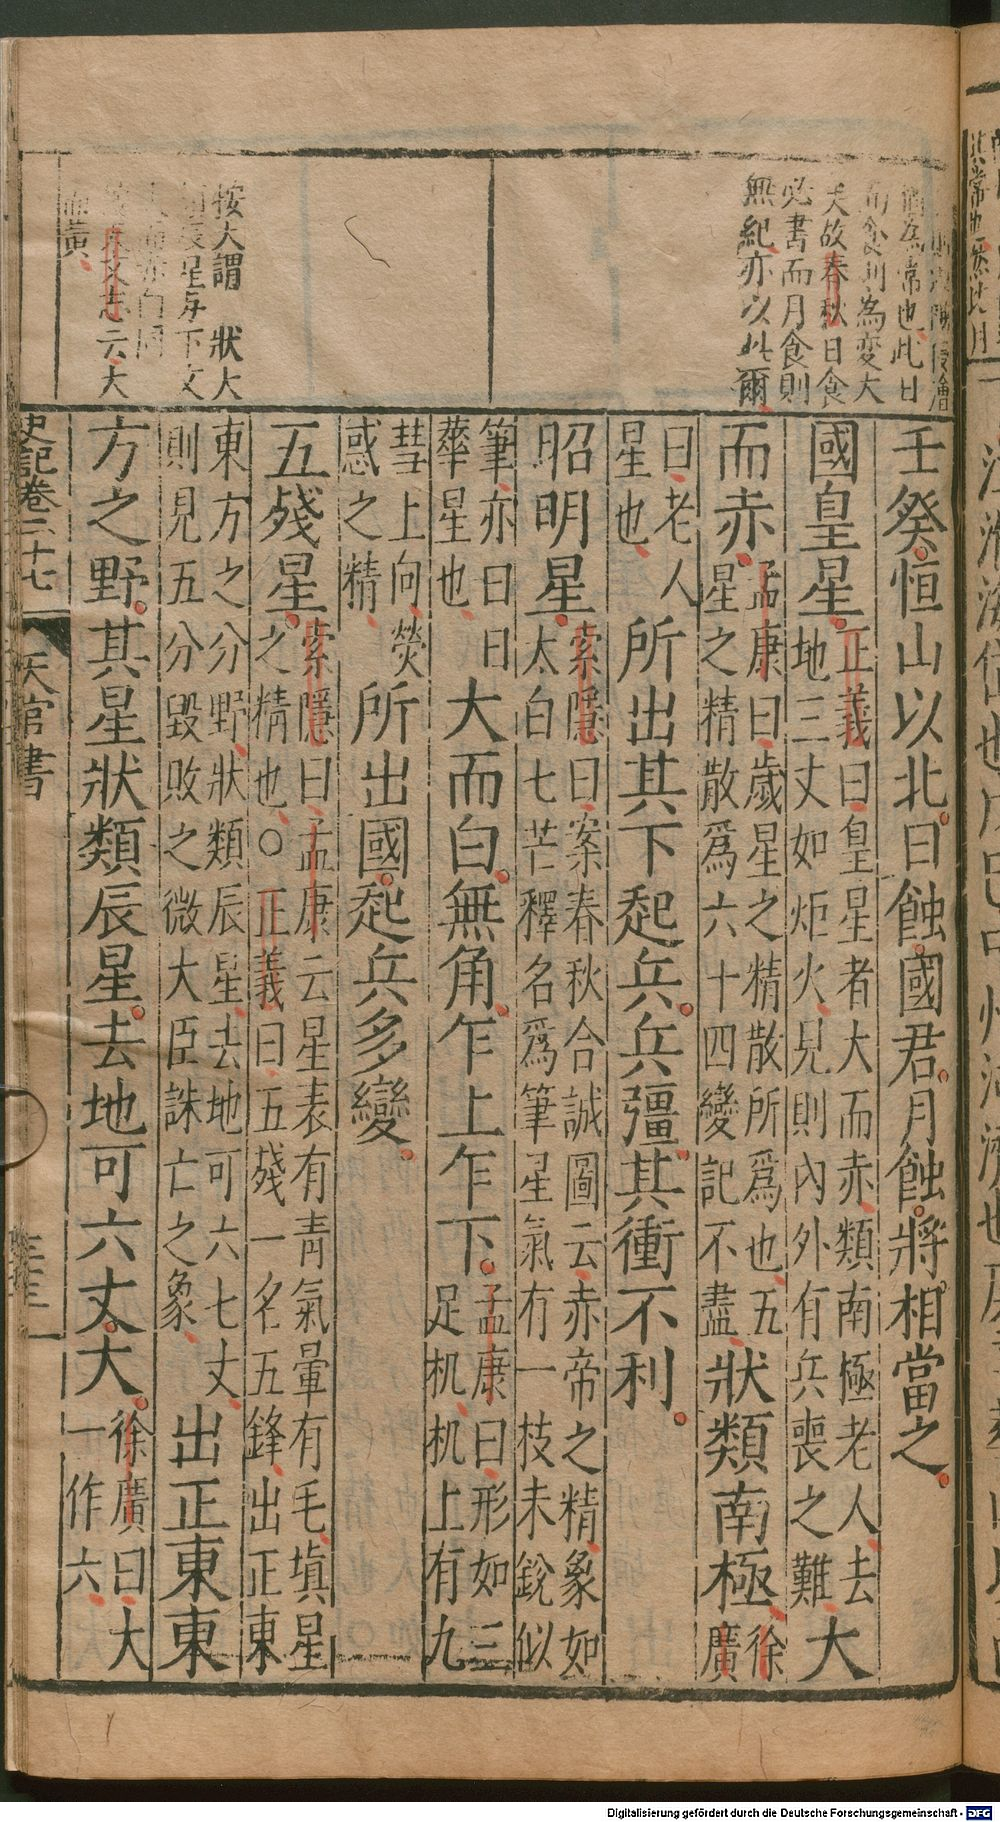 壬癸恒山以北日蝕國君月蝕將相當之
國皇星正義曰皇星者大而赤類南極老人去
地三丈如炬火見則內外有兵喪之難大
而赤孟康曰歲星之精散所爲也五
星之精散爲六十四變記不盡狀類南極徐廣
曰老人
星也所出其下起兵兵彊其衝不利
昭明星索隱曰案春秋合誠圖云赤帝之精象如
太白七芒釋名爲筆星氣有一枝末銳似
筆亦曰
華星也大而白無角乍上乍下孟康曰形如三
足机机上有九
彗上向熒
惑之精所出國起兵多變
五殘星索隱曰孟康云星表有靑氣暈有毛塡星
之精也○正義曰五殘一名五鋒出正東
東方之分野狀類辰星去地可六七丈
則見五分毀敗之微大臣誅亡之象出正東東
方之野其星狀類辰星去地可六丈大徐廣曰大
一作六
史記卷二十七 天官書
常也此日
而食則為変大
矣故春秋日食
必書而月食則
無紀亦以此爾
按大謂 狀大
辰星与下文
志云大
而黃
Digitalisierung gefördert durch die Deutsche Forschungsgemeinschaft - DFG